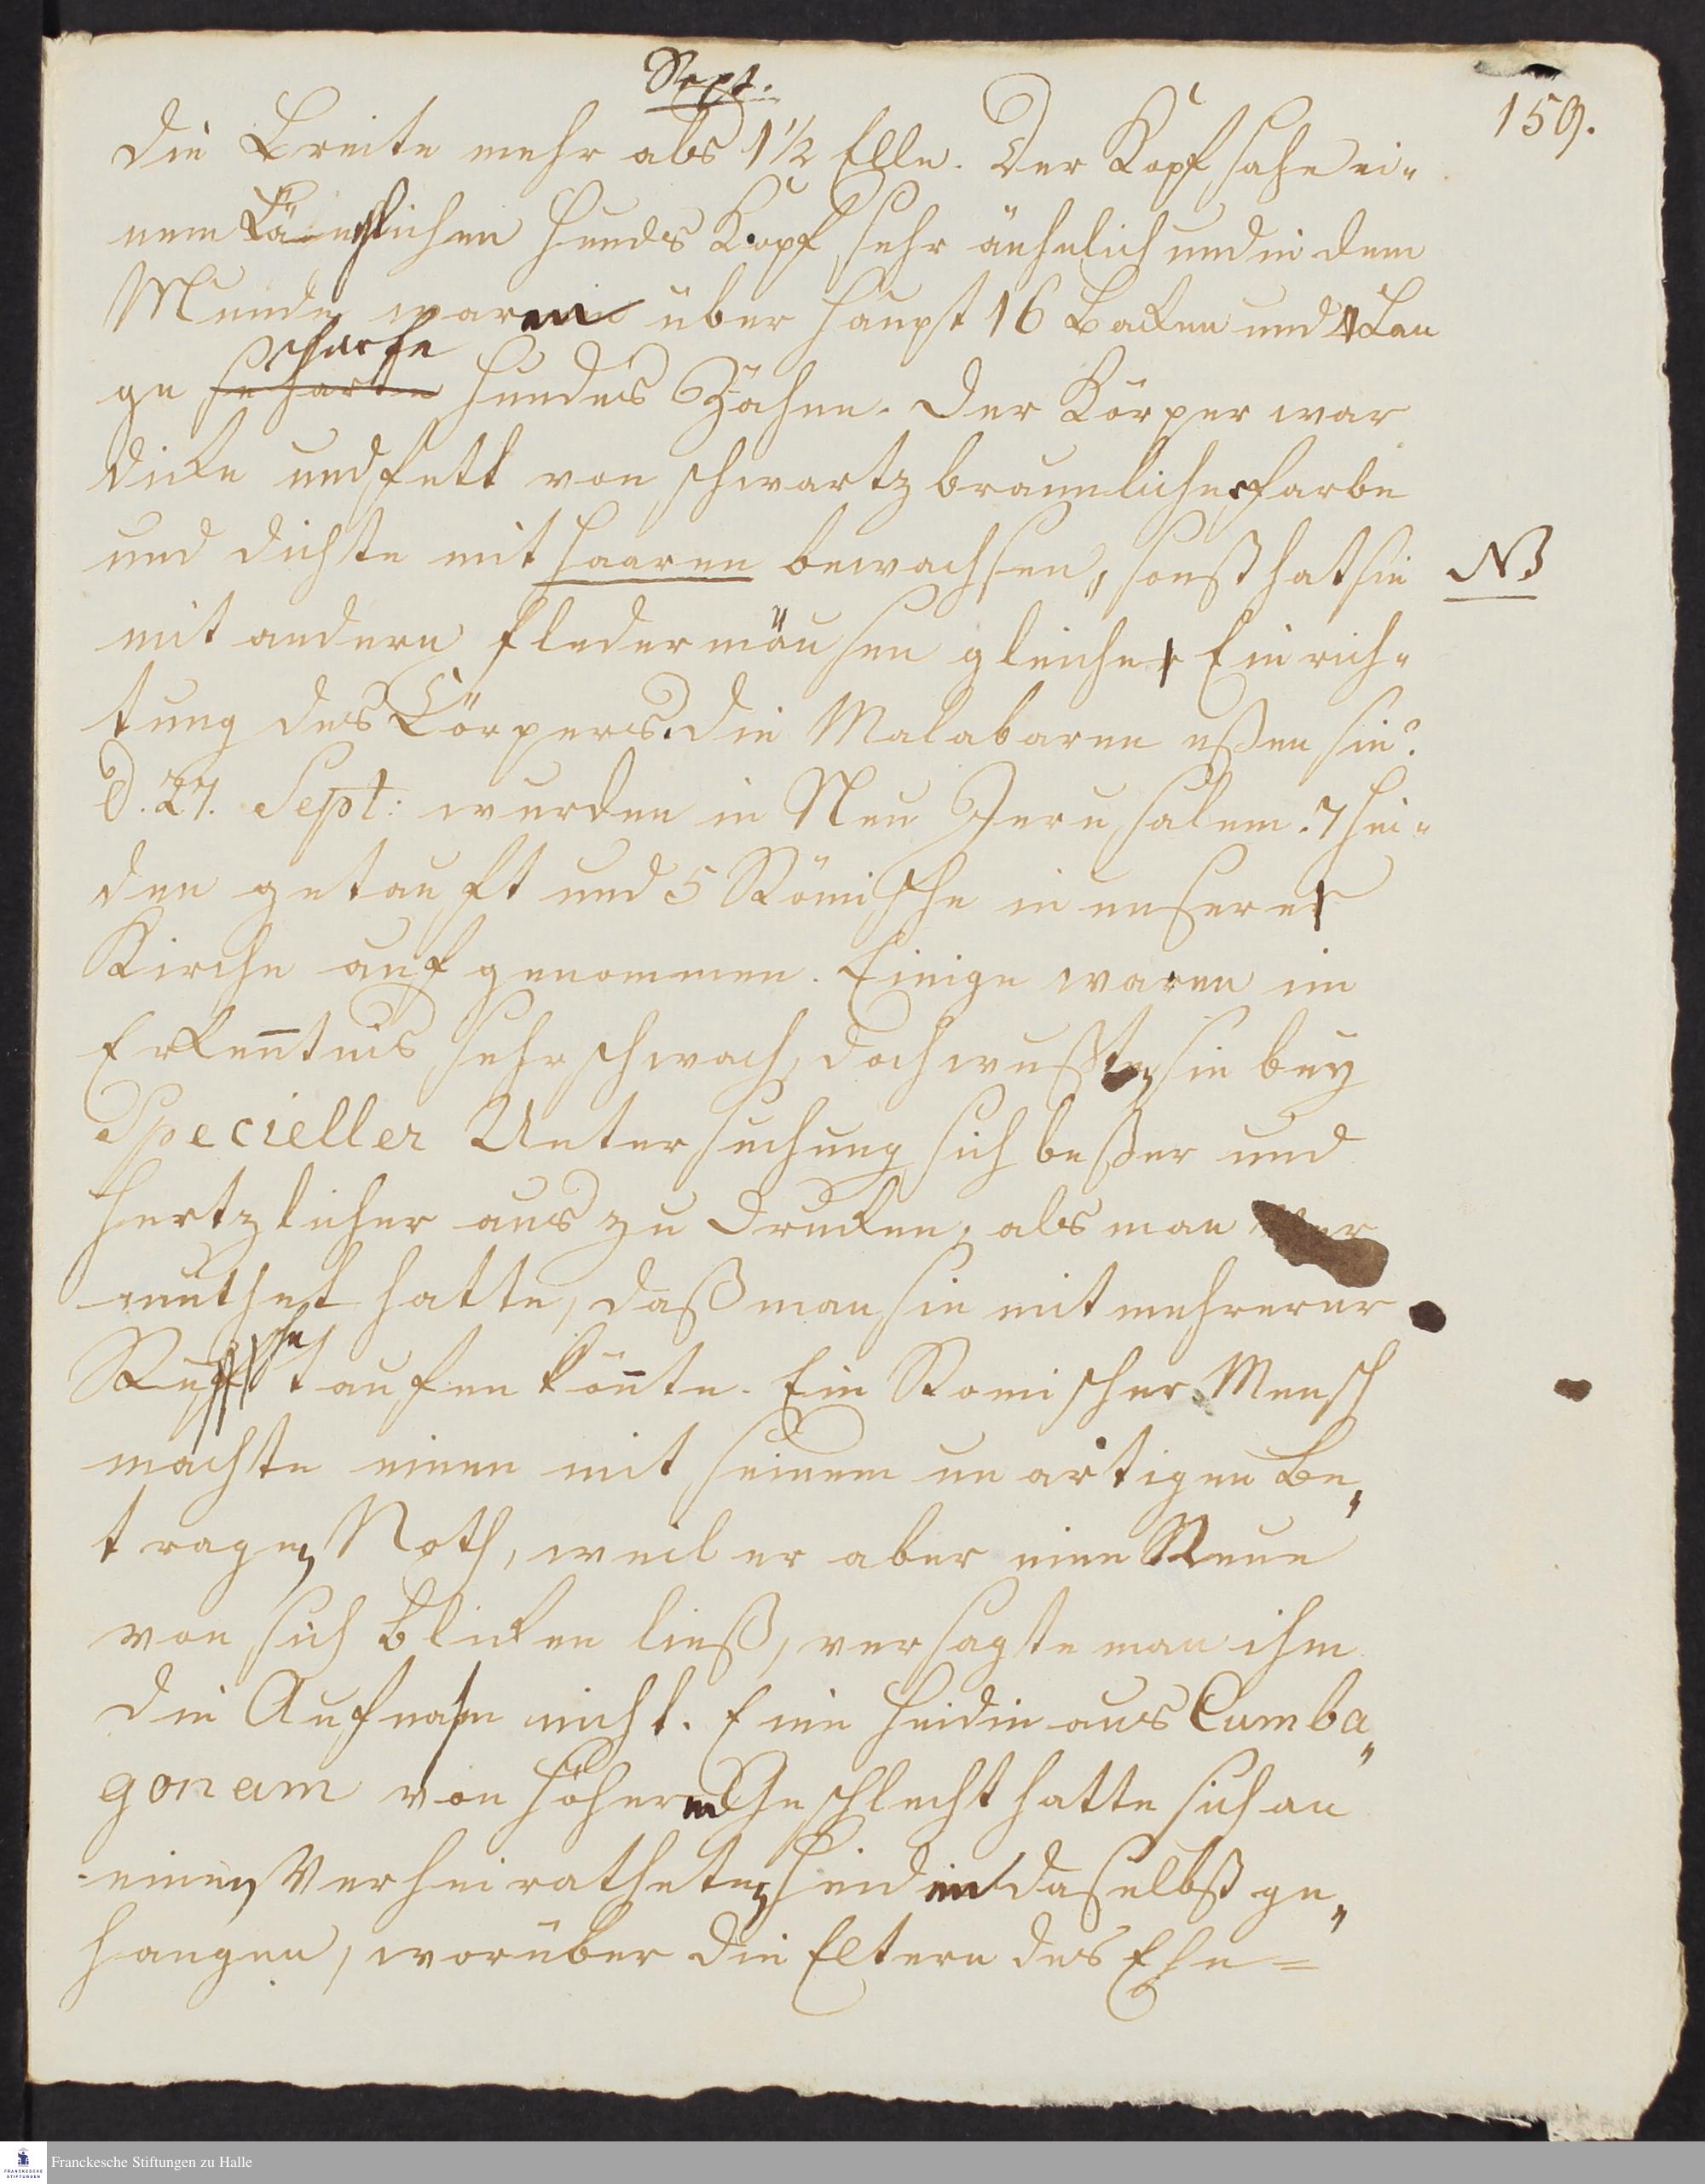 Sept.
159.
die Breite mehr als 1 1/2 Elle. Der Kopf sahe ei-
nem länglichen Hunds Kopf sehr ähnlich und in dem
Munde waren über haupt 16 Backen und 4 Lan
scharfe
ge scharten Hundes Zähne. Der Körper war
dicke und fett von schwartz braunlicher farbe
und dichte mit Haaren bewachsen, sonst hat sie
NB
mit andern fledermäusen gleiche Einrich-
tung des Cörpers. Die Malabaren eßen sie.
d. 27. Sept: wurden in Neu Jerusalem 7 Hei-
den getauft und 5 Römische in unsere
Kirche aufgenommen. Einige waren im
Erkentnis sehr schwach, doch wußten sie bey
Specieller Untersuchung sich beßer und
hertzlicher aus zu drucken, als man ver
muthet hatte, daß man sie mit mehrerer
he
taufen könte. Ein Romischer Mensch
machte einen mit seinem un artigen Be-
tragen Noth, weil er aber eine Reue
von sich blicken ließ, versagte man ihm
die Aufnahm nicht. Eine Heidin aus Cumba-
gonam von höherm Geschlecht hatte sich an
einen verheiratheten Heiden daselbst ge-
hangen, worüber die Eltern des Ehe=
Franckesche Stiftungen zu Halle
FRANCKESCHE
STIFTUNGEN